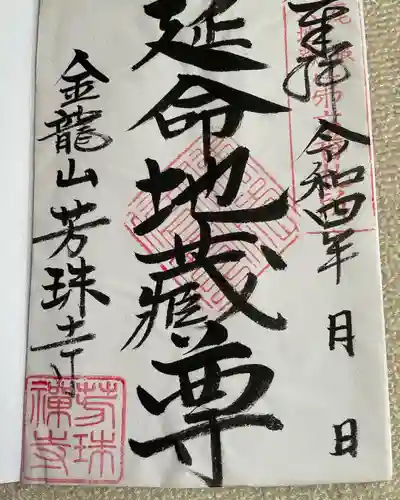 奉拝 令和四年 月 日
延命地蔵尊
金龍山 芳珠寺
芳珠
禅寺